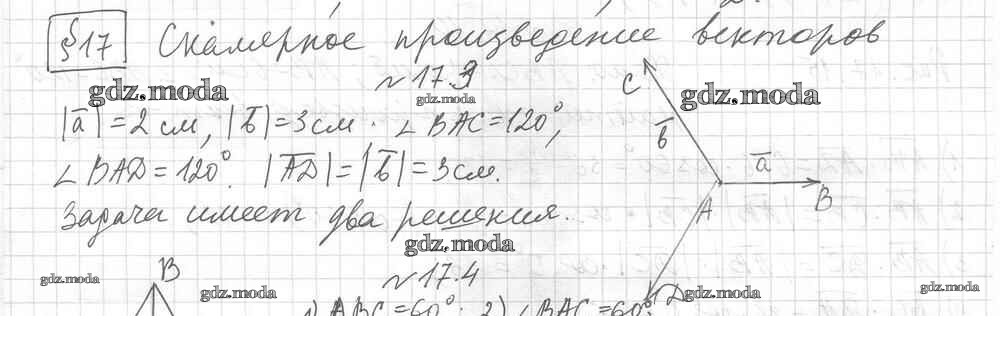 §17 Скалярное произведение векторов
№17.3
gdz.moda
gdz.moda
gdz.moda
|a̅| = 2 см, |b̅| = 3 см. ∠BAC = 120°,
∠BAD = 120°. |A̅D̅| = |b̅| = 3 см.
Задача имеет два решения.
C
b̅
a̅
A
B
D
gdz.moda
№17.4
B
gdz.moda
gdz.moda
gdz.moda
gdz.moda
ABC = 60°. 2) ∠BAC = 60°.